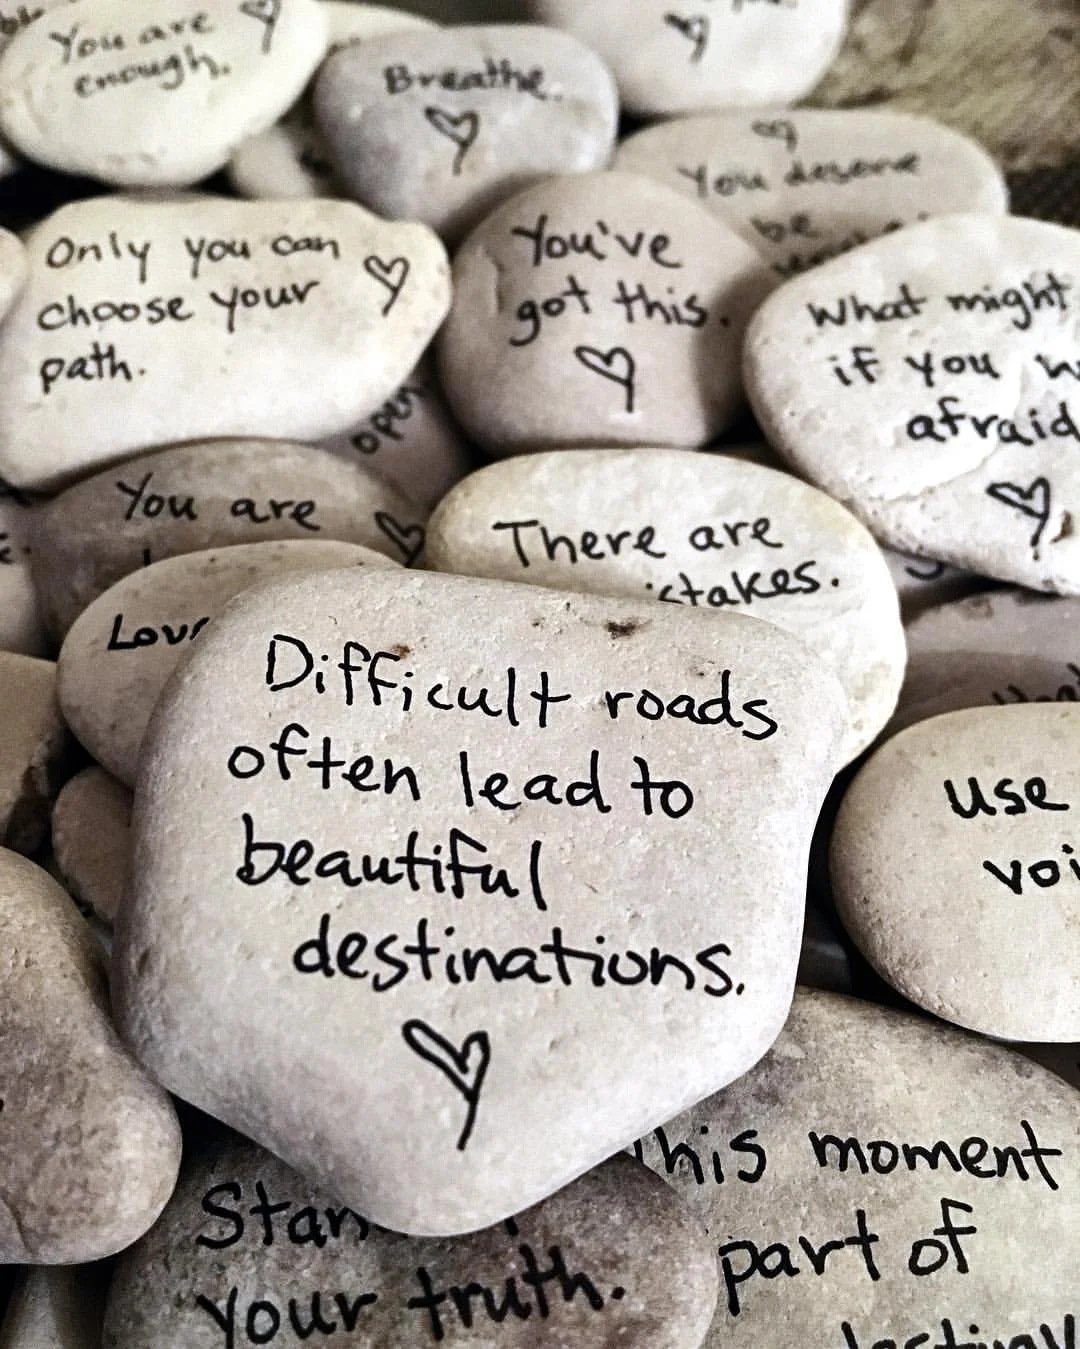 You are
enough.
Breathe.
You deserve
be
Only you can
choose your
path.
You've
got this.
What might
if you
afraid
open
You are
There are
Difficult roads
often lead to
beautiful
destinations.
use
This moment
part of
your truth.